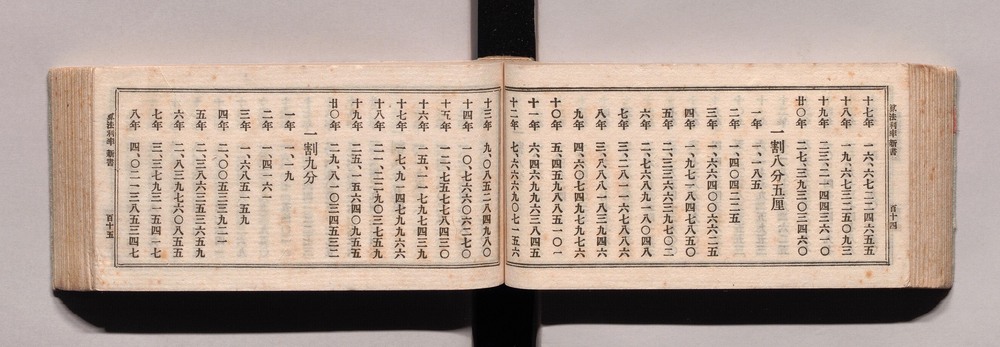 算法利率 新書
百十四
十七年 一六、六七二二四六五五
十八年 一九、六七三二五〇九三
十九年 二三、二一四四三六一〇
廿〇年 二七、三九三〇三四六〇
一割八分五厘
一年 一、一八五
二年 一、四〇四二二五
三年 一、六六四〇〇六六二五
四年 一、九七一八四七八五〇
五年 二、三三六六三九七〇二
六年 二、七六八九一八〇四八
七年 三、二八一一六七八八六
八年 三、八八八一八三九四六
九年 四、六〇七四九七九七五
十〇年 五、四五九八八五一〇一
十一年 六、四六九九六三八四五
十二年 七、六六六九〇七一五六
十三年 九、〇八五二八四九八〇
十四年 一〇、七六六〇六二七〇
十五年 一二、七五七七八四三〇
十六年 一五、一一七九七四三九
十七年 一七、九一四七九九六六
十八年 二一、二二九〇三七五九
十九年 二五、一五六四〇九五五
廿〇年 二九、八一〇三四五三二
一割九分
一年 一、一九
二年 一、四一六一
三年 一、六八五一五九
四年 二、〇〇五三三九二一
五年 二、三八六三五三六五九
六年 二、八三九七六〇八五五
七年 三、三七九三一五四一七
八年 四、〇二一三八五三四七
算法利率 新書
百十五